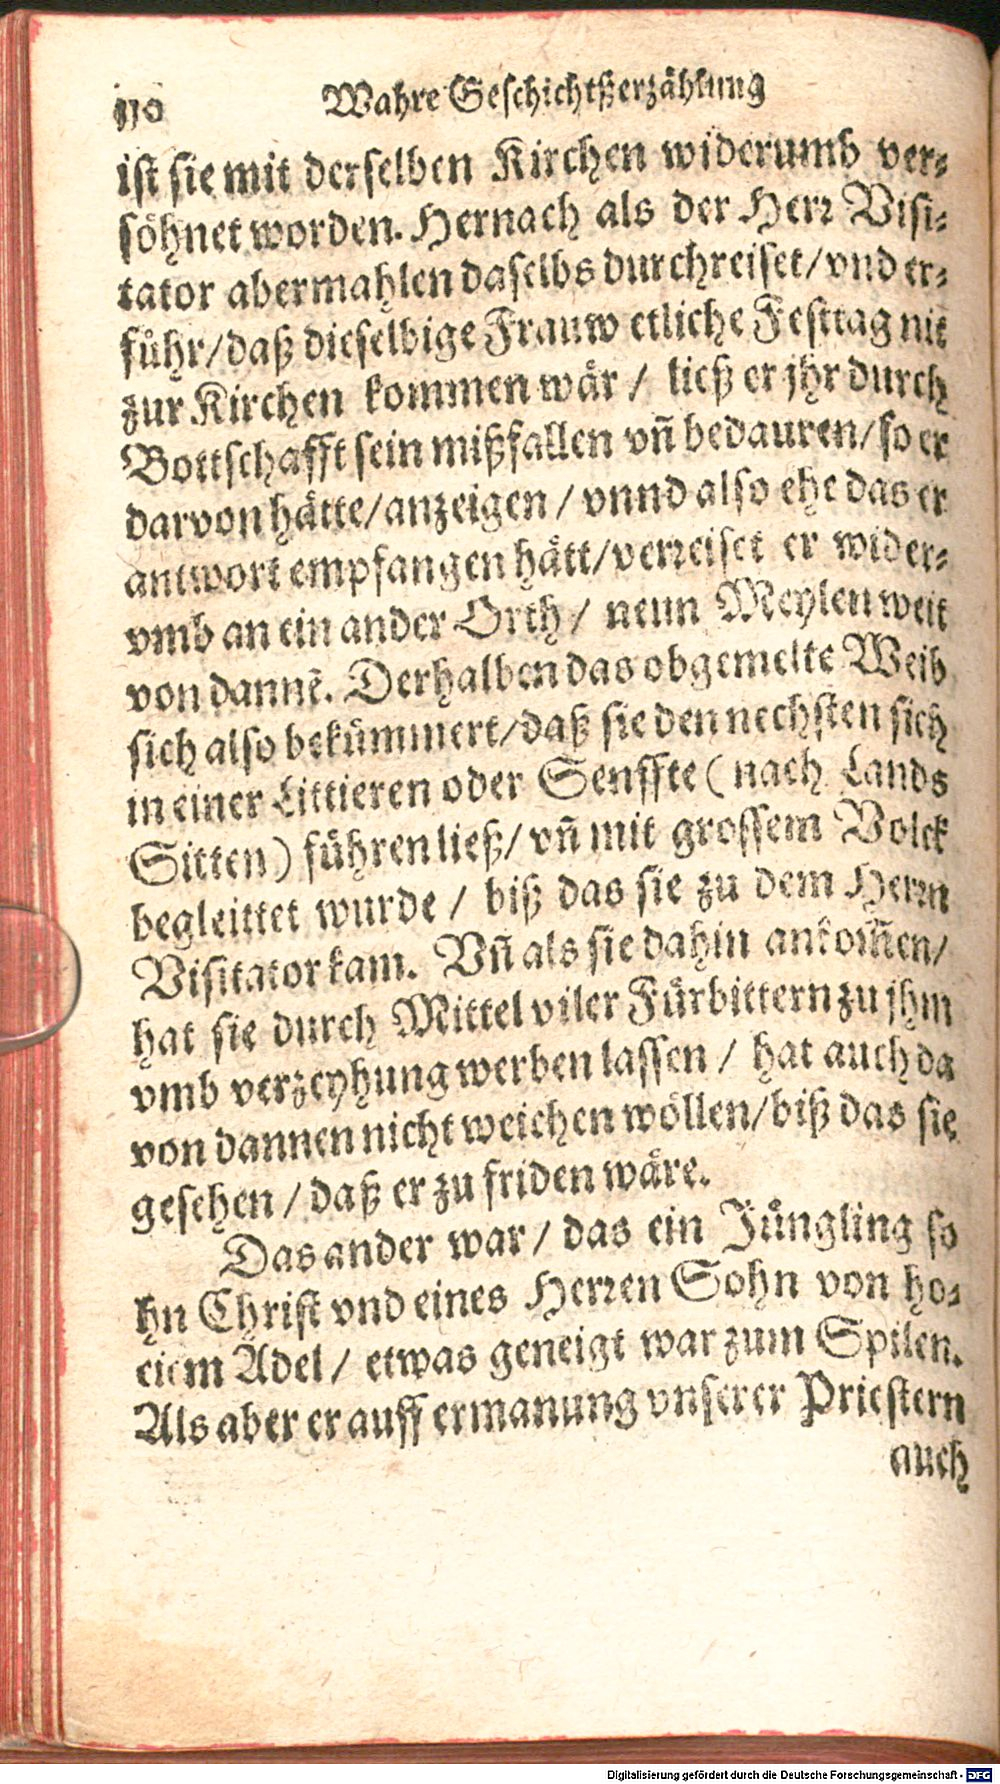 110 Wahre Geschichtßerzählung
ist sie mit derselben Kirchen widerumb ver⸗
söhnet worden. Hernach als der Herr Visi⸗
tator abermahlen daselbs durchreiset/ vnd er⸗
fůhr/ daß dieselbige Frauw etliche Festtag nit
zur Kirchen kommen wär / ließ er jhr durch
Bottschafft sein mißfallen vñ bedauren/ so er
darvon hätte/ anzeigen / vnnd also ehe das er
antwort empfangen hätt/ verreiset er wider⸗
vmb an ein ander Orth / neun Meylen weit
von dannẽ. Derhalben das obgemelte Weib
sich also bekümmert/ daß sie den nechsten sich
in einer Littieren oder Senffte ( nach Lands
Sitten) führen ließ/ vñ mit grossem Volck
begleittet wurde / biß das sie zu dem Herrn
Visitator kam. Vñ als sie dahin ankom̃en/
hat sie durch Mittel viler Fürbittern zu jhm
vmb verzeyhung werben lassen / hat auch da
von dannen nicht weichen wöllen/ biß das sie
gesehen / daß er zu friden wäre.
Das ander war / das ein Jüngling so
hn Christ vnd eines Herren Sohn von ho⸗
eiem Adel / etwas geneigt war zum Spilen.
Als aber er auff ermanung vnserer Priestern
auch
Digitalisierung gefördert durch die Deutsche Forschungsgemeinschaft - DFG